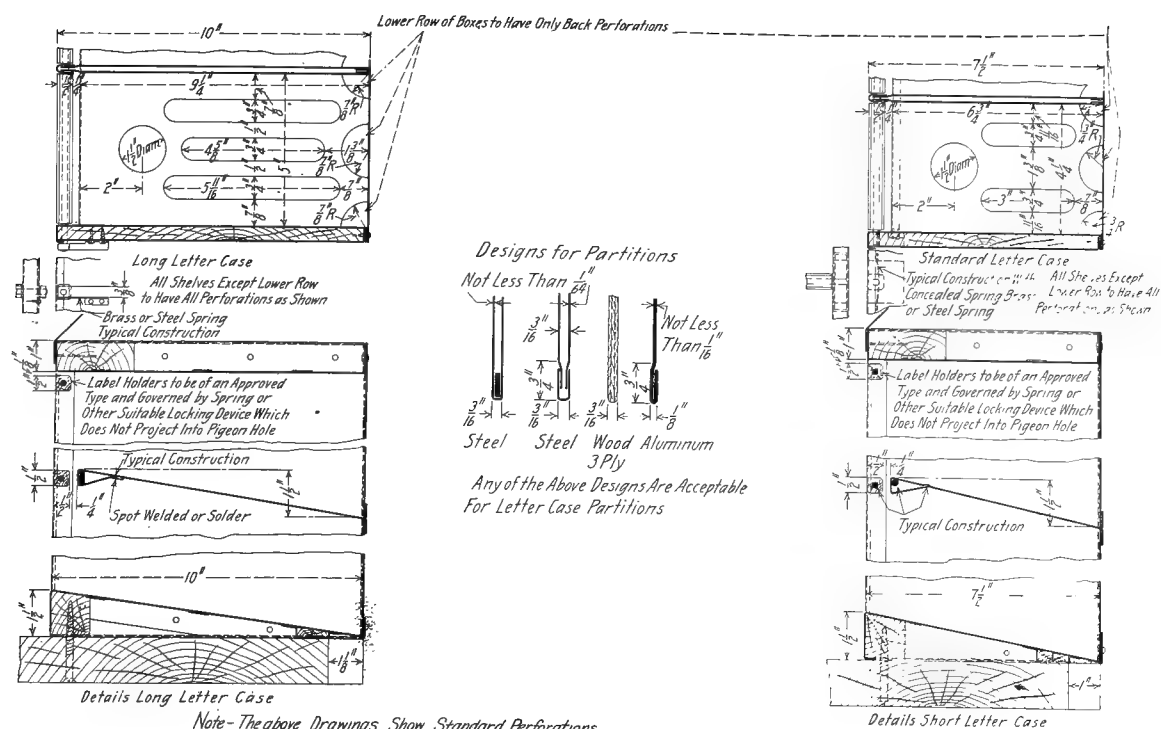 Lower Row of Boxes to Have Only Back Perforations
10"
9 1/4"
1/2"
1/4"
7/8"
3/4"
1/2"
3/4"
1/2"
3/4"
7/8"
5"
7/8" R
1 1/2" Diam
4 5/8"
1 3/8"
7/8" R
2"
5 11/16"
7/8"
7/8" R
Long Letter Case
All Shelves Except Lower Row
to Have All Perforations as Shown
3/8"
Brass or Steel Spring
Typical Construction
1"
1/8"
1/2"
Label Holders to be of an Approved
Type and Governed by Spring or
Other Suitable Locking Device Which
Does Not Project Into Pigeon Hole
Typical Construction
1/2"
1 1/2"
1/2"
1/4"
Spot Welded or Solder
10"
1 1/2"
1 1/8"
Details Long Letter Case
Note - The above Drawings Show Standard Perforations
Designs for Partitions
Not Less Than 1/64"
Not Less
Than 1/16"
3/16"
3/4"
3/4"
3/16"
3/16"
3/16"
1/8"
Steel
Steel
Wood
3 Ply
Aluminum
Any of the Above Designs Are Acceptable
For Letter Case Partitions
7 1/2"
6 3/4"
1/4"
11/16"
3/4"
1 3/8"
3/4"
11/16"
4 1/4"
3/4 R
1 1/2" Diam
3"
7/8"
2"
Standard Letter Case
Typical Construction With
Concealed Spring Brass
or Steel Spring
All Shelves Except
Lower Row to Have All
Perforations as Shown
1"
1/8"
1/2"
Label Holders to be of an Approved
Type and Governed by Spring or
Other Suitable Locking Device Which
Does Not Project Into Pigeon Hole
1/2"
1/4"
1/2"
1 1/2"
Typical Construction
7 1/2"
1 1/2"
1"
Details Short Letter Case